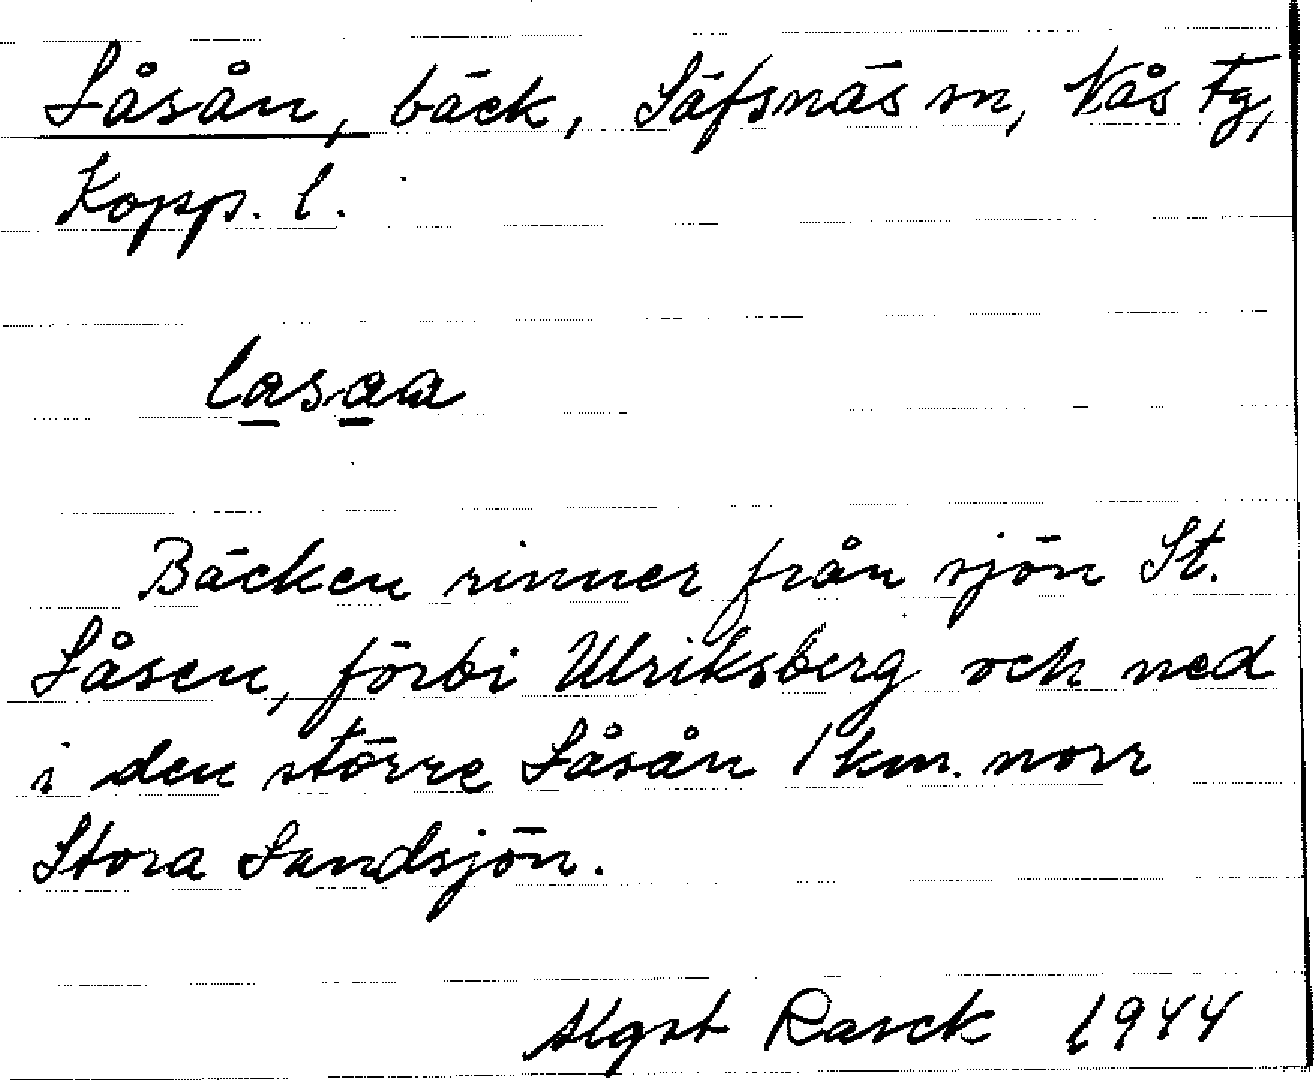 Låsån, bäck, Säfsnäs sn, Nås Fg,
Kopp. l.
lasaa
Bäcken rinner från sjön St.
Låsen, förbi Ulriksberg och ned
i den större Låsån 1 km. norr
Stora Sandsjön.
Algot Rasck 1944